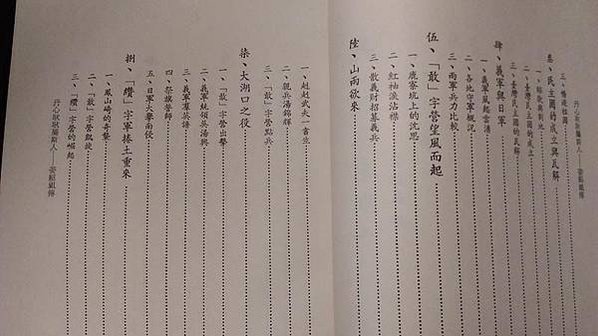 丹心耿耿屬斯人──姜紹祖傳
三、
參、民主國的成立與瓦解
一、
二、臺灣民主國的成立
三、臺灣民主國的瓦解
肆、義軍與日軍
一、義軍風起雲湧
二、各地守軍概況
三、兩軍兵力比較
伍、「敢」字營望風而起
一、鹿寮坑上的沈思
二、紅袖淚沾襟
三、散義財招募義兵
陸、山雨欲來
一、赳赳武夫一書生
二、親兵湯錦輝
三、「敢」字營點兵
柒、大湖口之役
一、「敢」字營出擊
二、義軍統領吳湯興
三、義軍羣英譜
四、祭旗誓師
五、日軍大舉南侵
捌、「纘」字軍捲土重來
一、鳳山崎的奇襲
二、「敢」字營凱旋
三、「纘」字營的崛起
丹心耿耿屬斯人──姜紹祖傳